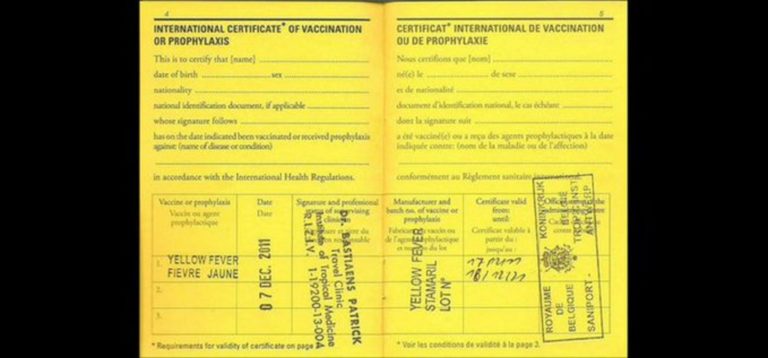 4
INTERNATIONAL CERTIFICATE* OF VACCINATION
OR PROPHYLAXIS
This is to certify that [name]
date of birth sex
nationality
national identification document, if applicable
whose signature follows
has on the date indicated been vaccinated or received prophylaxis
against: (name of disease or condition)
in accordance with the International Health Regulations.
Vaccine or prophylaxis
Vaccin ou agent
prophylactique
Date
Date
Signature and professional
status of supervising
clinician
1.
YELLOW FEVER
FIEVRE JAUNE
07 DEC. 2011
DR. BASTIAENS PATRICK
Travel Clinic
Institute of Tropical Medicine
1-19200-13-004
2.
3.
* Requirements for validity of certificate on page
5
CERTIFICAT* INTERNATIONAL DE VACCINATION
OU DE PROPHYLAXIE
Nous certifions que [nom]
né(e) le de sexe
et de nationalité
document d'identification national, le cas échéant
dont la signature suit
a été vacciné(e) ou a reçu des agents prophylactiques à la date
indiquée contre: (nom de la maladie ou de l'affection)
conformément au Règlement sanitaire international.
Manufacturer and
batch no. of vaccine or
prophylaxis
Fabricant du vaccin ou
de l'agent prophylactique
et numéro du lot
Certificate valid
from:
until:
Certificat valable à
partir du :
jusqu'au :
YELLOW FEVER
STAMARIL
LOT N°
KONINKRIJK
BELGIË
ANTWERP
ROYAUME
DE
BELGIQUE
SANIPORT-
* Voir les conditions de validité à la page 3.